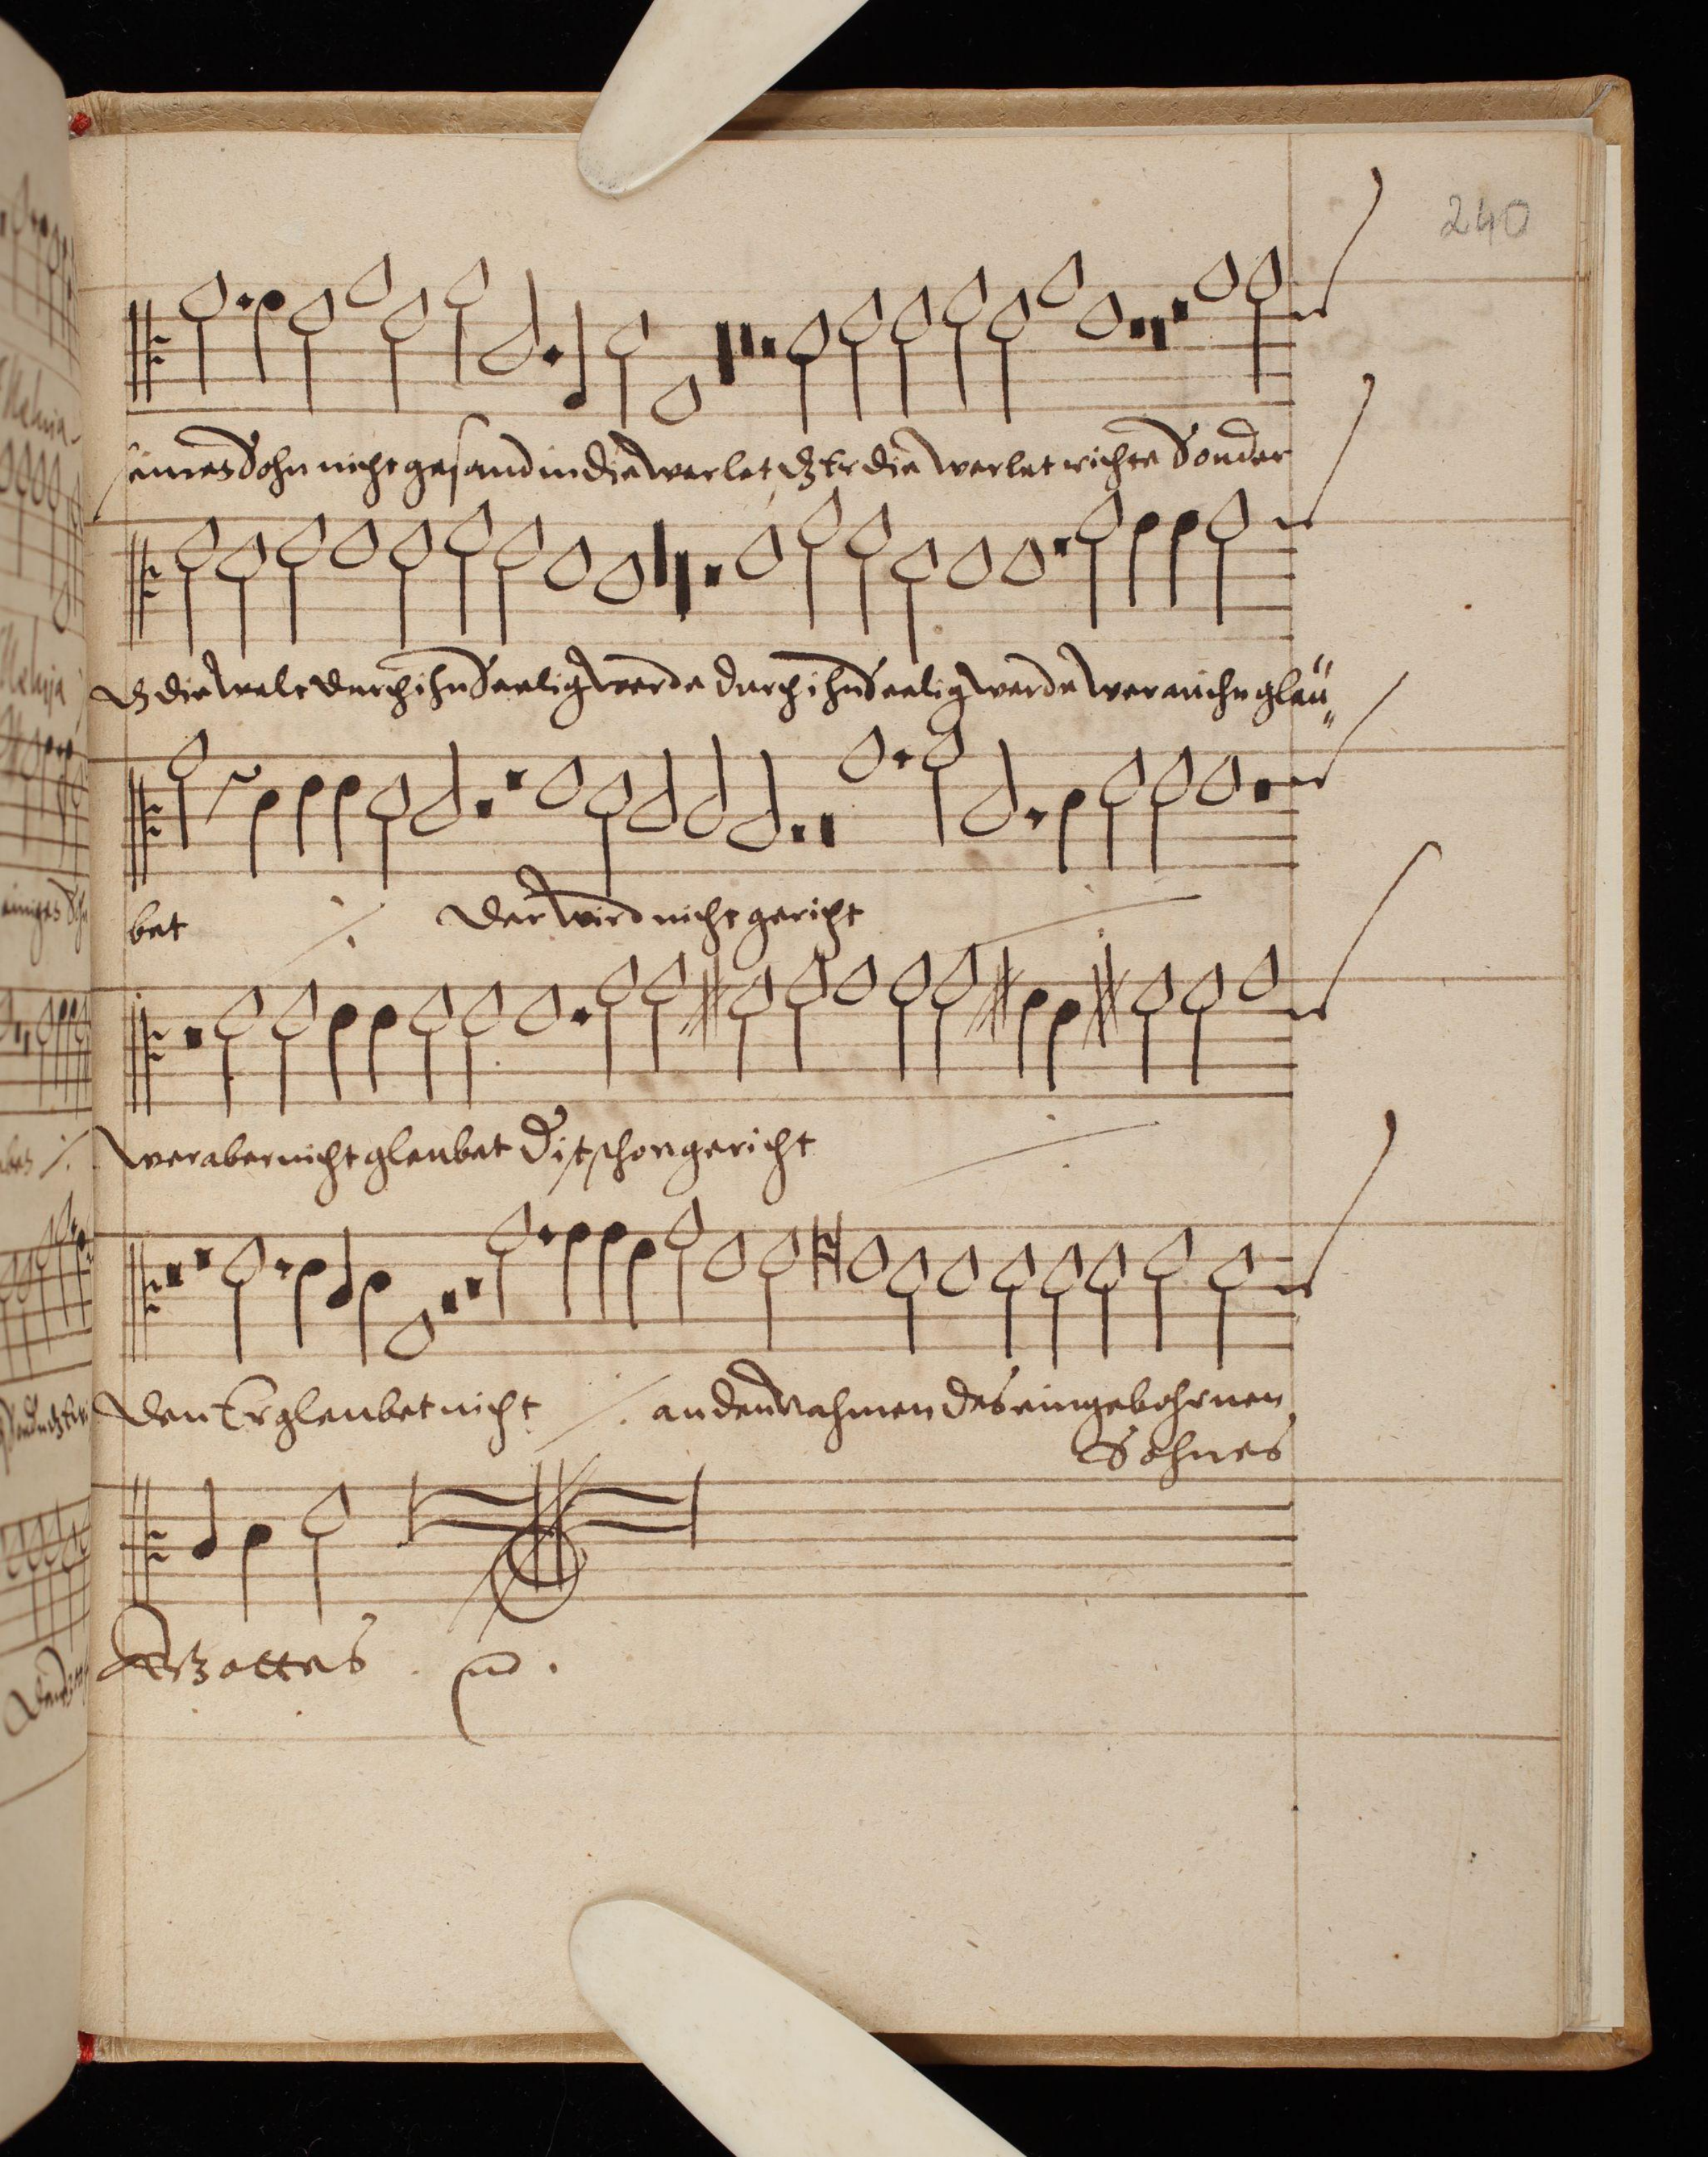 240
seines Sohn nicht gesand in die werlet, dz Er die werlet richte Sonder
dz die welt durch ihn Seelig werde durch ihn Seelig werde wer an ihn gleü„
bet ٪ der wird nicht gericht
wer aber nicht gleubet D ist schon gericht
den Er gleubet nicht ٪ an den nahmen des eingebohrnen
Sohnes
Gottes